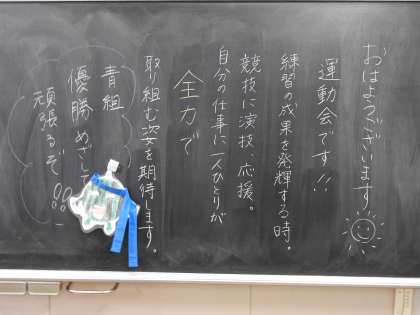 おはようございます
運動会です!!
練習の成果を発揮する時。
競技に演技、応援。
自分の仕事に一人ひとりが
全力で
取り組む姿を期待します。
青組
優勝めざして
頑張るぞ!!